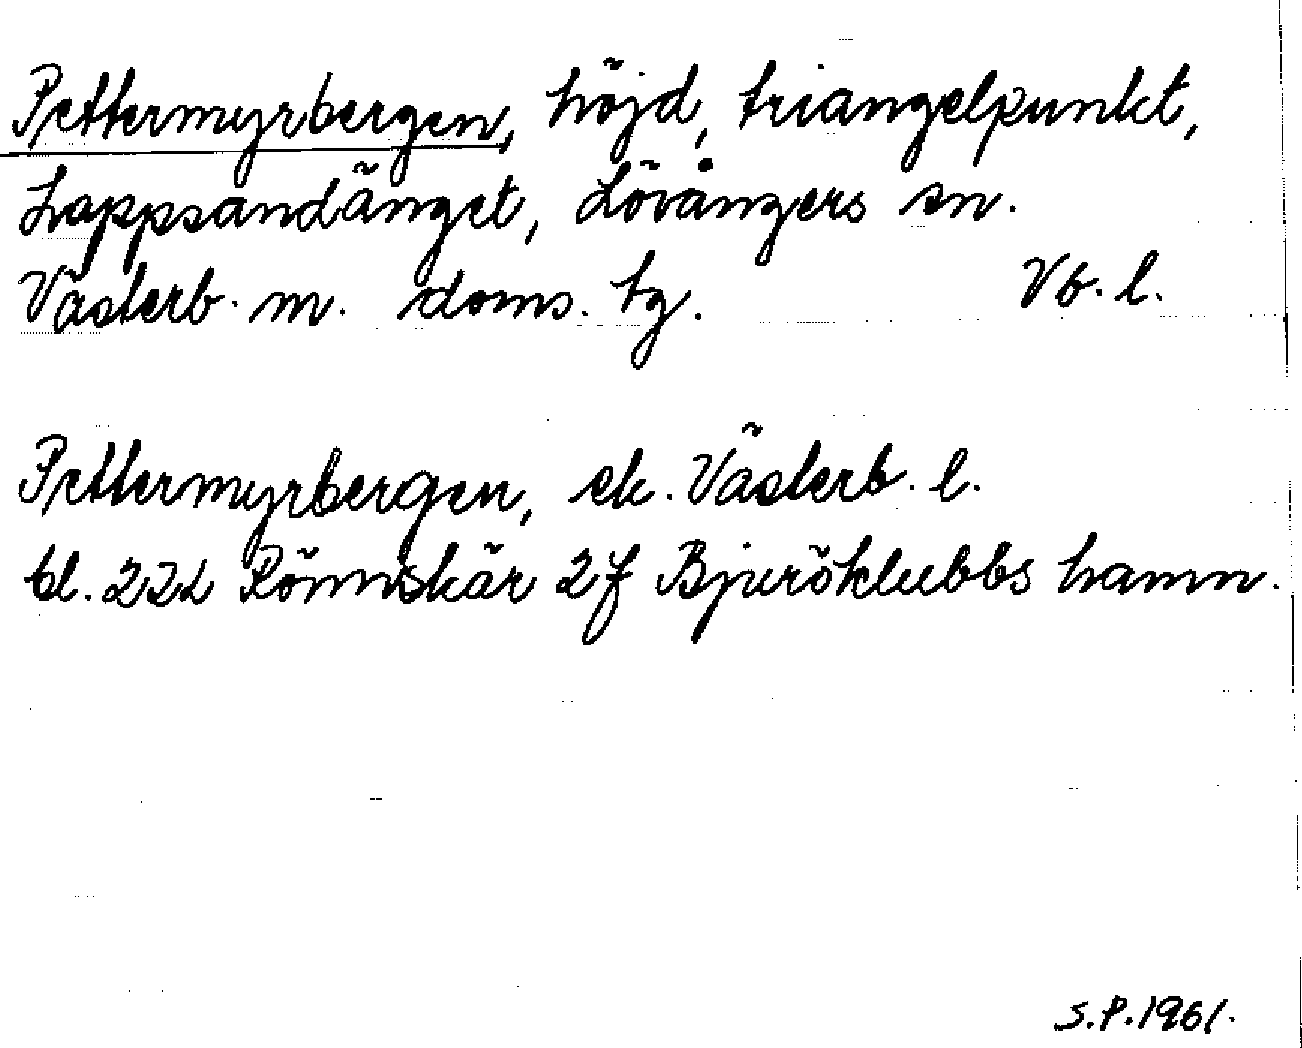 Pettermyrbergen, höjd, triangelpunkt,
Lappsandänget, Lövångers sn.
Västerb. m. doms. tg. Vb. l.
Pettermyrbergen, ek. Västerb. l.
bl. 22L Rönnskär 2f Bjuröklubbs hamn.
S.P.1961.